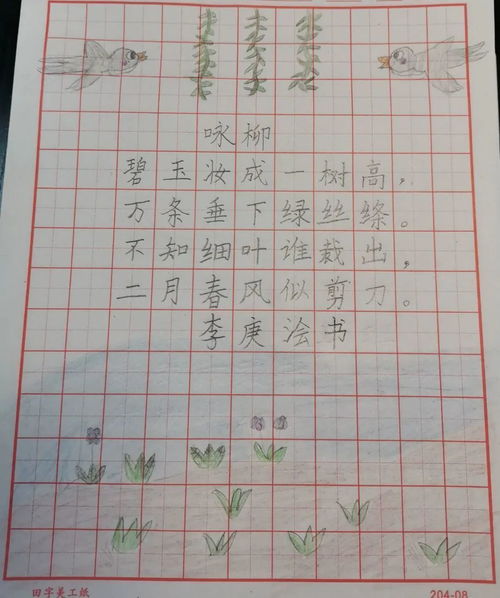 咏柳
碧玉妆成一树高，
万条垂下绿丝绦。
不知细叶谁裁出，
二月春风似剪刀。
李庚浍书
田字美工纸
204-08